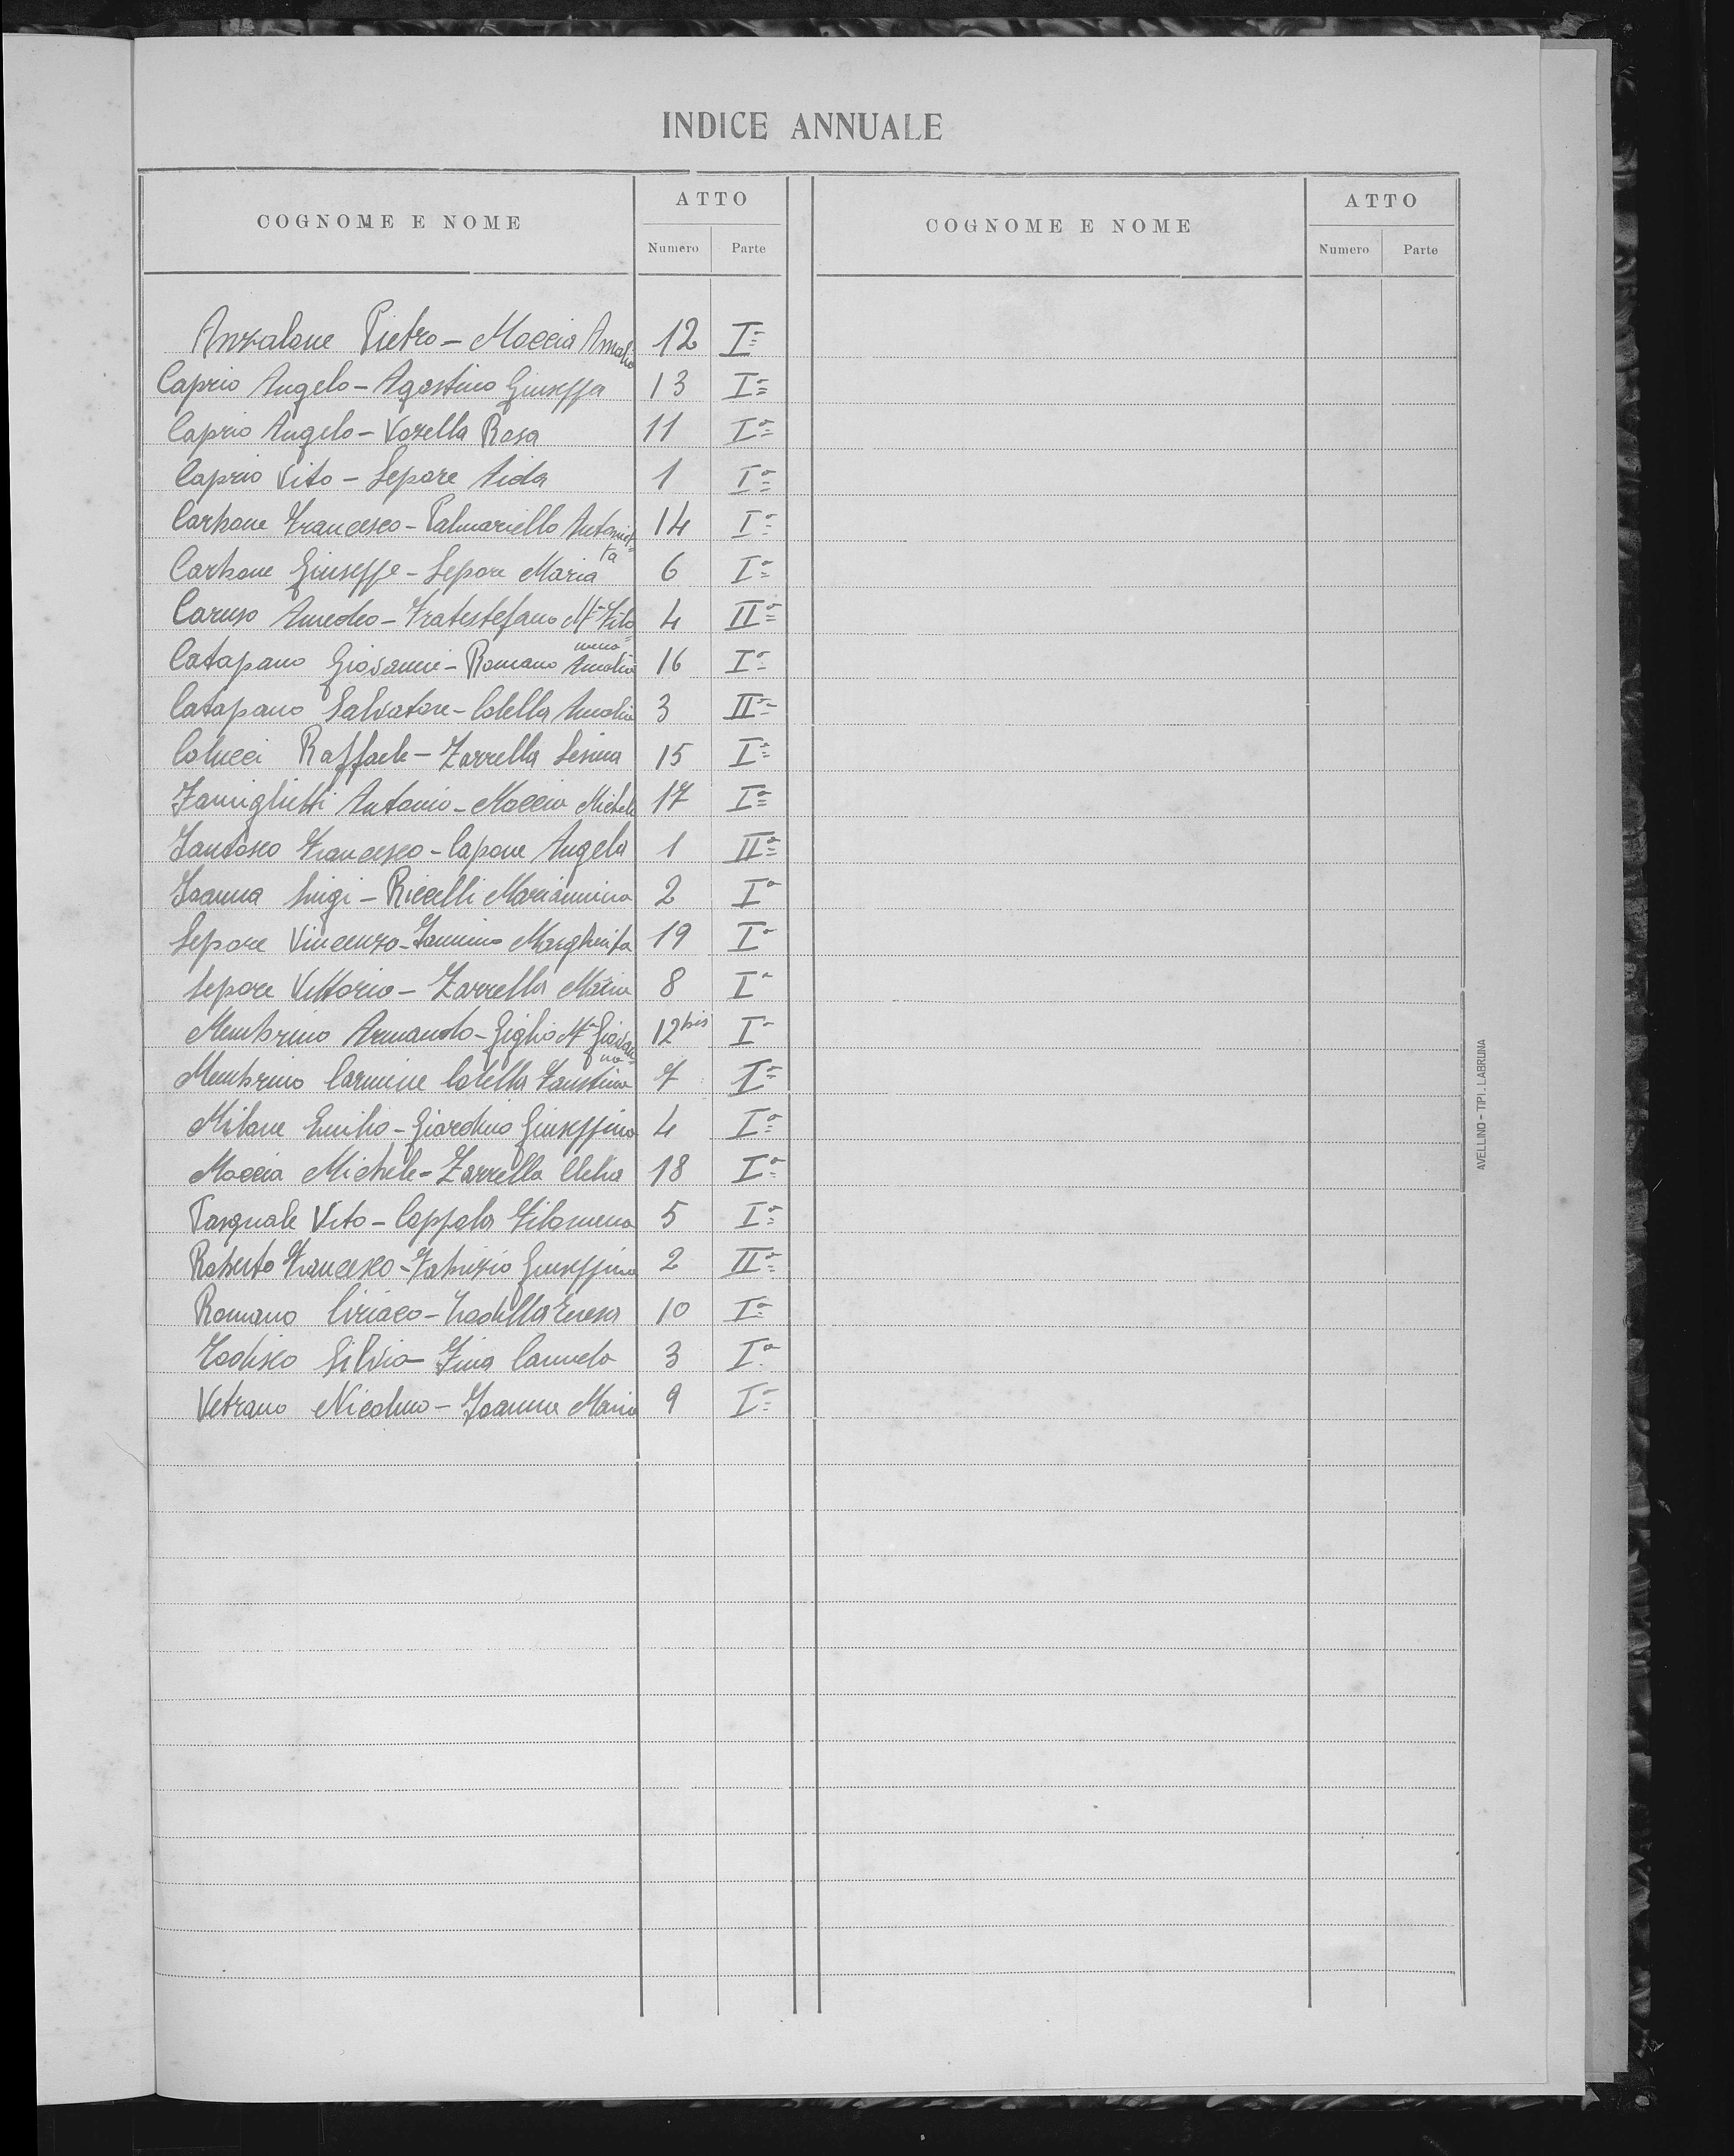 INDICE ANNUALE
COGNOME E NOME ATTO COGNOME E NOME ATTO
Numero Parte Numero Parte
Anzalone Pietro - Moccia Amalia 12 Iª
Caprio Angelo - Agostino Giuseppa 13 Iª
Caprio Angelo - Vozella Rosa 11 Iª
Caprio Vito - Lepore Aida 1 Iª
Carbone Francesco - Palmariello Antoniet= 14 Iª
ta
Carbone Giuseppe - Lepore Maria 6 Iª
Caruso Amedeo - Fratestefano Mª Filo= 4 IIª
mena
Catapano Giovanni - Romano Amalia 16 Iª
Catapano Salvatore - Colella Amalia 3 IIª
Colucci Raffaele - Zarrella 15 Iª
Famiglietti Antonio - Moccia Michela 17 Iª
Francesco - Capone Angela 1 IIª
Ioanna Luigi - Riccelli Mariannina 2 Iª
Lepore Vincenzo - Iannino Margherita 19 Iª
Lepore Vittorio - Zarrella Maria 8 Iª
Membrino Armando - Giglio Mª Giovan= 12 bis Iª
na
Membrino Carmine Colella Faustina 7 Iª
Milone Emilio - Giardino Giuseppina 4 Iª
Moccia Michele - Zarrella Clelia 18 Iª
Pasquale Vito - Coppola Filomena 5 Iª
Roberto Francesco - Fabrizio Giuseppina 2 IIª
Romano Ciriaco - 10 Iª
Todisco Silvio - Fina Carmela 3 Iª
Vetrano Nicolino - Ioanna Maria 9 Iª
AVELLINO - TIPI. LABRUNA